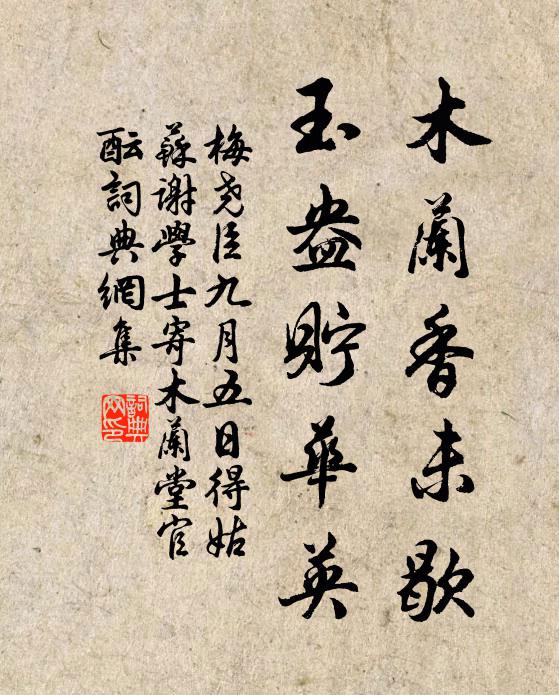 木蘭香未歇
玉盎貯華英
梅堯臣九月五日得姑
蘇謝學士寄木蘭堂官
醞詞典網集
詞典
網印